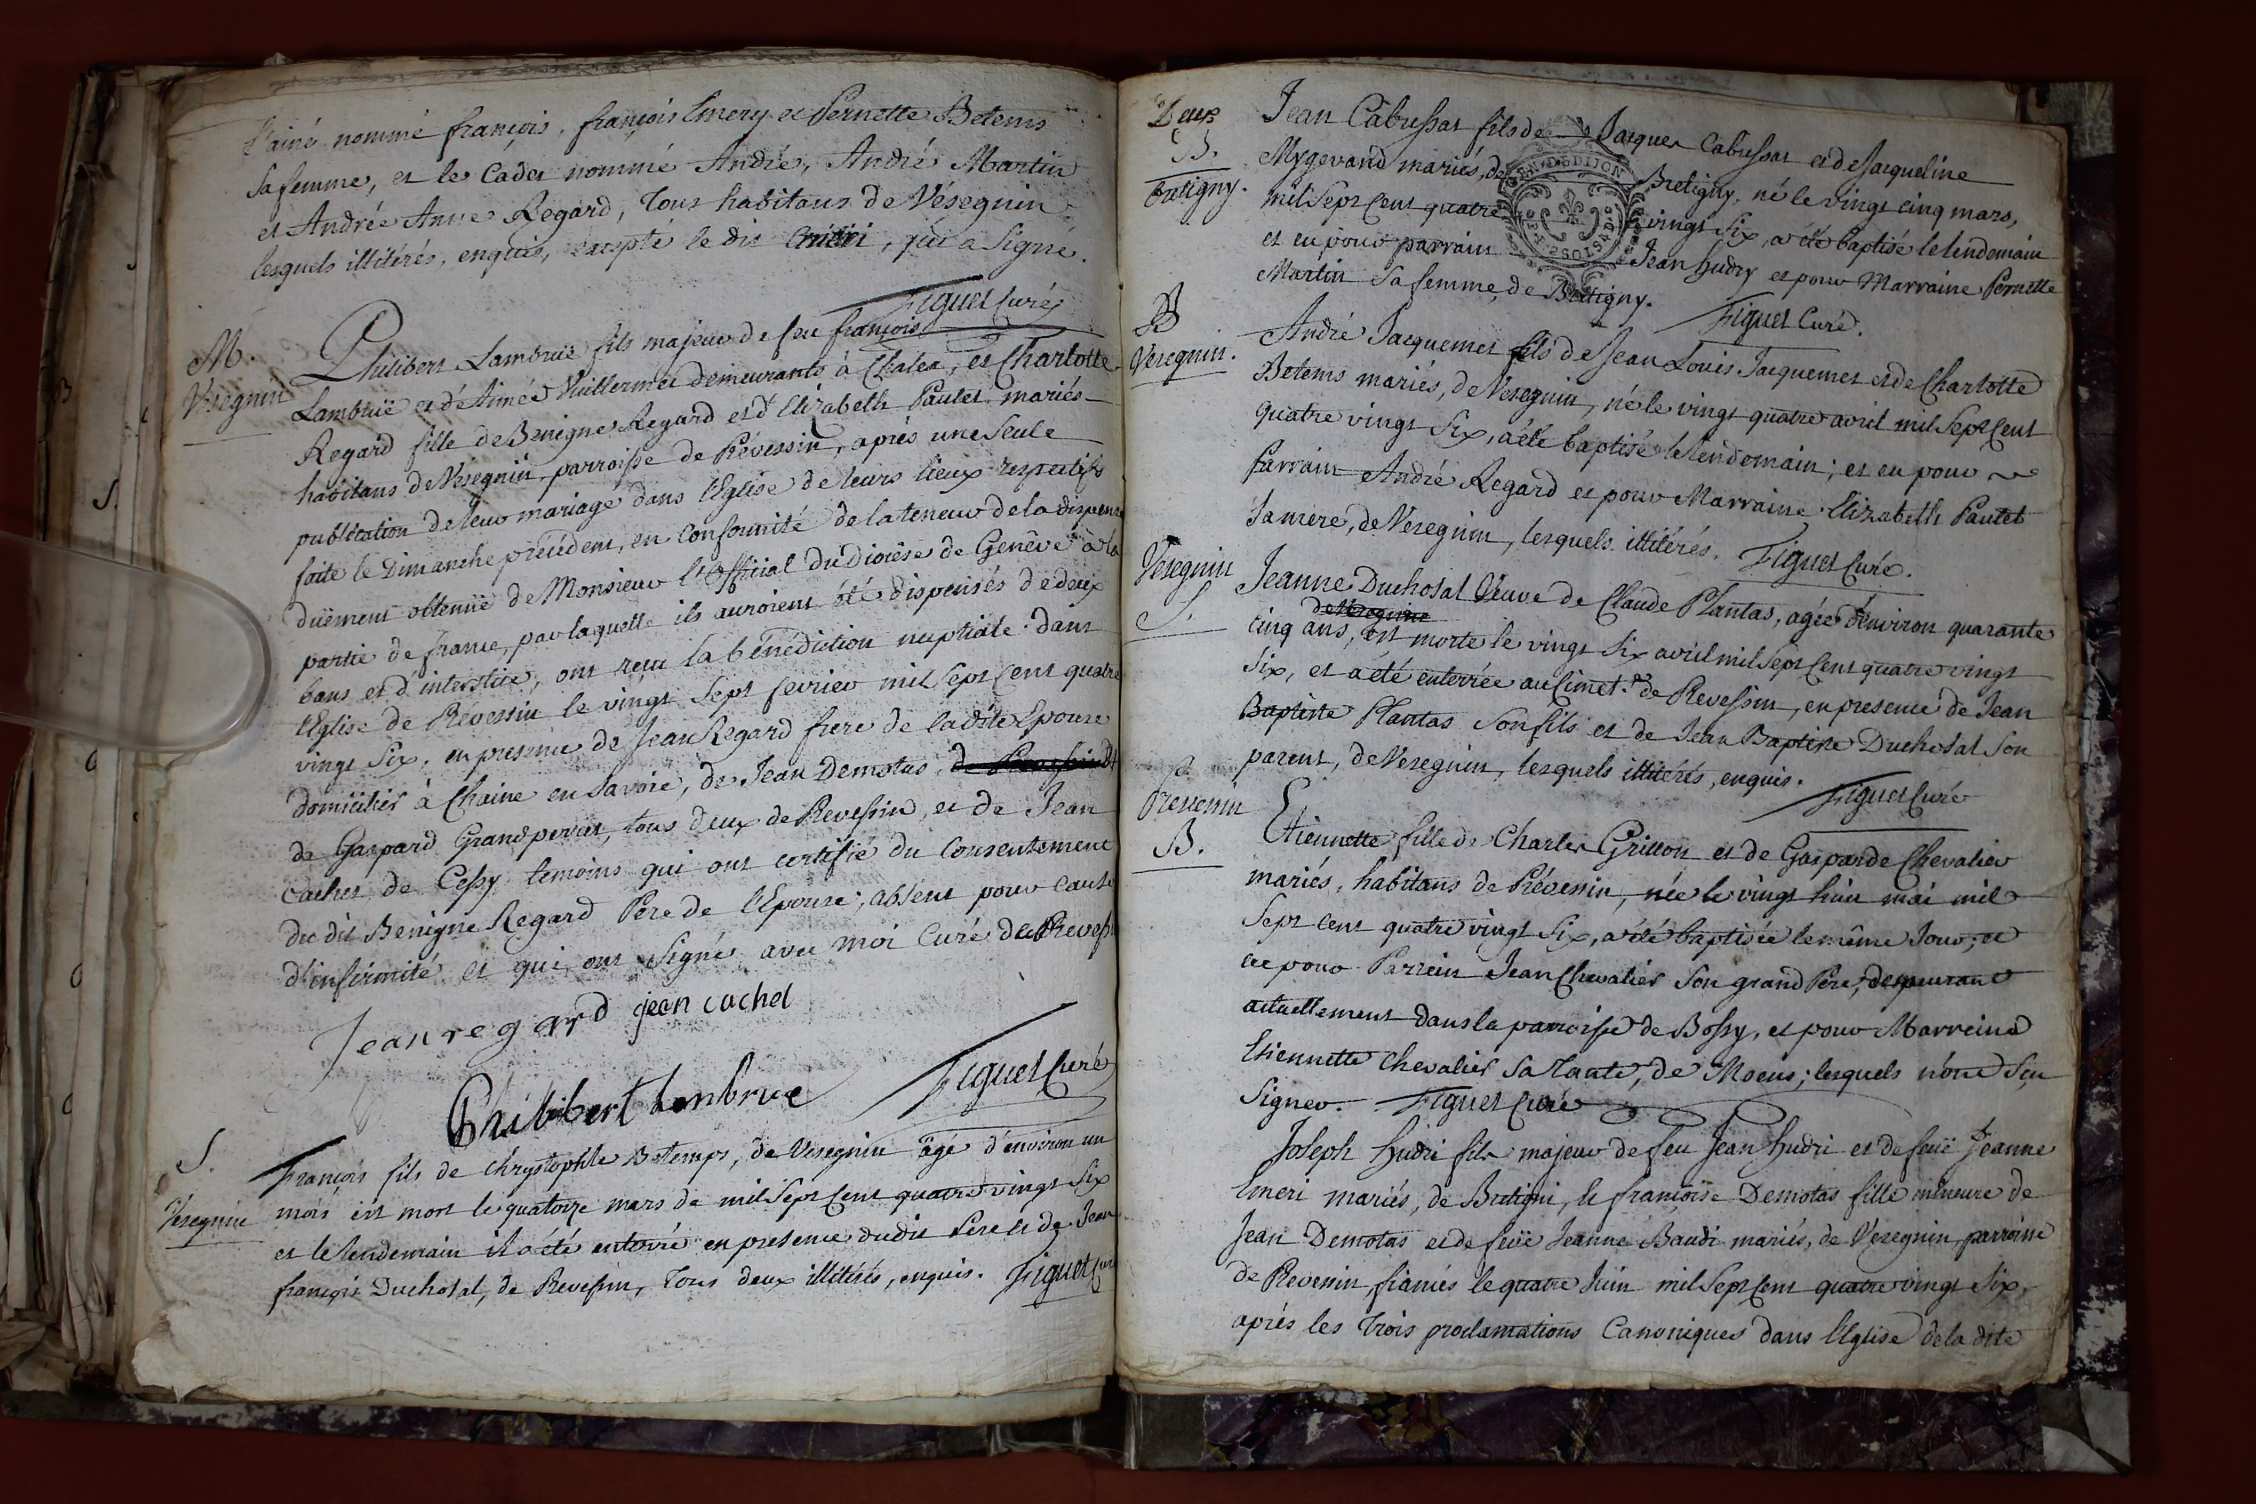 l'ainé nommé françois, françois Emery et Pernette Betems
sa femme, et le Cadet nommé André, André Martin
et Andrée Anne Regard, Tous habitans de Véseguin
lesquels illitérés, enquis, excepté le dit Emeri, qui a signé.
Figuet Curé
M.
Veseguin
Philibert Lambruë fils majeur de feu françois
Lambruë et de Aimée Vuillermet demeurants à Chalea, et Charlotte
Regard fille de Benigne Regard et d'Elizabeth Pautet mariés
habitans de Veseguin parroisse de Prévessin, après une seule
publication de leur mariage dans l'Eglise de leurs lieux respectifs
faite le Dimanche précédent, en conformité de la teneur de la dispense
duëment obtenuë de Monsieur l'Official du Diocèse de Genêve à la
partie de france, par laquelle ils auroient été dispensés de deux
bans et d'interstice, ont reçu la bénédiction nuptiale dans
l'Eglise de Prévessin le vingt sept fevrier mil sept cent quatre
vingt six, en presence de Jean Regard frere de la dite Epouse
domicilié à Chaine en Savoie, de Jean Demotas, de Prevessin et
de Gaspard Grandperret, tous deux de Prevessin, et de Jean
Cachet de Cessy temoins qui ont certifié du Consentement
du dit Benigne Regard Pere de l'Epouse, absent pour cause
d'infirmité et qui ont signés avec moi Curé de Prevessin
Jean regard jean cachet
Philibert Lanbrue Figuet Curé
S.
Véseguin
François fils de Chrystophle Betemps, de Veseguin âgé d'environ un
mois est mort le quatorze mars de mil sept cent quatre vingt six
et le lendemain il a été enterré en presence du dit Pere et de Jean
françois Duchosal, de Prevessin, Tous deux illitérés, enquis. Figuet Curé
Deux
B.
Bretigny.
Jean Cabussat fils de Jacques Cabussat et de Jacqueline
Mygerand mariés, de Bretigny, né le vingt cinq mars,
mil sept cent quatre vingt six, a été baptisé le lendemain
et eu pour parrain Jean Hudry et pour Marraine Pernette
Martin sa femme, de Bretigny.
GEN. DE DIJON
Figuet Curé.
B
Veseguin.
André Jacquemet fils de Jean Louis Jacquemet et de Charlotte
Betems mariés, de Veseguin, né le vingt quatre avril mil sept cent
quatre vingt six, a été baptisé le lendemain; et eu pour
Parrain André Regard et pour Marraine Elizabeth Pautet
sa mere, de Veseguin, lesquels illitérés. Figuet Curé.
Veseguin
S.
Jeanne Duchosal Veuve de Claude Plantas, agée d'environ quarante
de Veseguin
cinq ans, est morte le vingt six avril mil sept cent quatre vingt
six, et a été enterrée au Cimet.re de Prevessin, en presence de Jean
Baptiste Plantas son fils et de Jean Baptiste Duchosal son
parent, de Veseguin, lesquels illitérés, enquis.
Figuet Curé
Prevessin
B.
Etiennette fille de Charles Grillon et de Gasparde Chevalier
mariés, habitans de Prévessin, née le vingt huit mai mil
sept cent quatre vingt six, a été baptisée le même Jour, et
eu pour Parrein Jean Chevalier son grand Pere, demeurant
actuellement dans la parroisse de Bossy, et pour Marreine
Etiennette Chevalier sa Tante, de Moens; lesquels n'ont seu
signer. Figuet Curé
Joseph Hudri fils majeur de feu Jean Hudri et de feuë Jeanne
Emeri mariés, de Bretigni, et françoise Demotas fille mineure de
Jean Demotas et de feuë Jeanne Baudi mariés, de Véseguin, parroisse
de Prevessin, fiancés le quatre Juin mil sept cent quatre vingt six,
après les Trois proclamations Canoniques dans l'Eglise de la dite